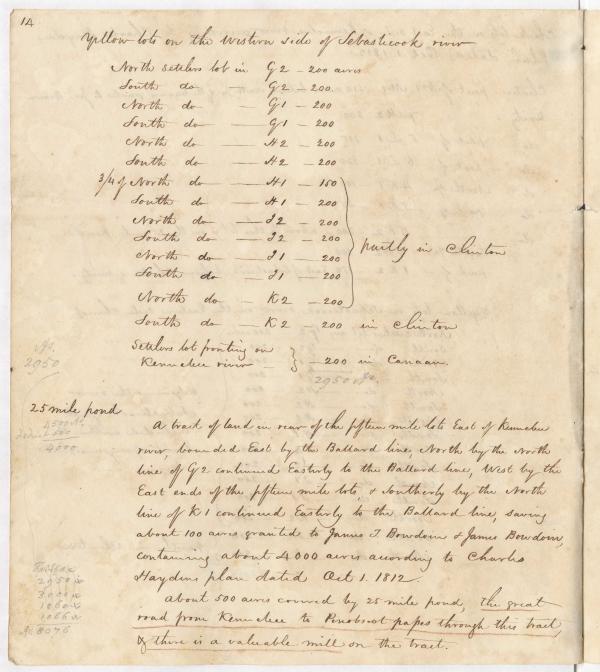 14
Yellow lots on the western side of Sebasticook river
North settlers lot in G2 - 200 acres
South do — G2 - 200.
North do — G1 - 200
South do — G1 - 200
North do — H2 - 200
South do — H2 - 200
3/4 of North do — H1 - 150
South do — H1 - 200
North do — I2 - 200
South do — I2 - 200
partly in Clinton
North do — I1 - 200
South do — I1 - 200
North do — K2 - 200
South do — K2 - 200 in Clinton
Settlers lot fronting on
Kennebec river — } - 200 in Canaan.
2950
2950
25 mile pond
4000
A tract of land in rear of the fifteen mile lots East of Kennebec
river, bounded East by the Ballard line, North by the North
line of G2 continued Easterly to the Ballard line, West by the
East ends of the fifteen mile lots, & Southerly by the North
line of K1 continued Easterly to the Ballard line, saving
about 100 acres granted to James T. Bowdoin & James Bowdoin,
containing about 4000 acres according to Charles
Haydins plan dated Oct 1. 1812.
About 500 acres covered by 25 mile pond, the great
road from Kennebec to Penobscot passes through this tract,
& there is a valuable mill on the tract.
2950
3000
1060
1066
8076